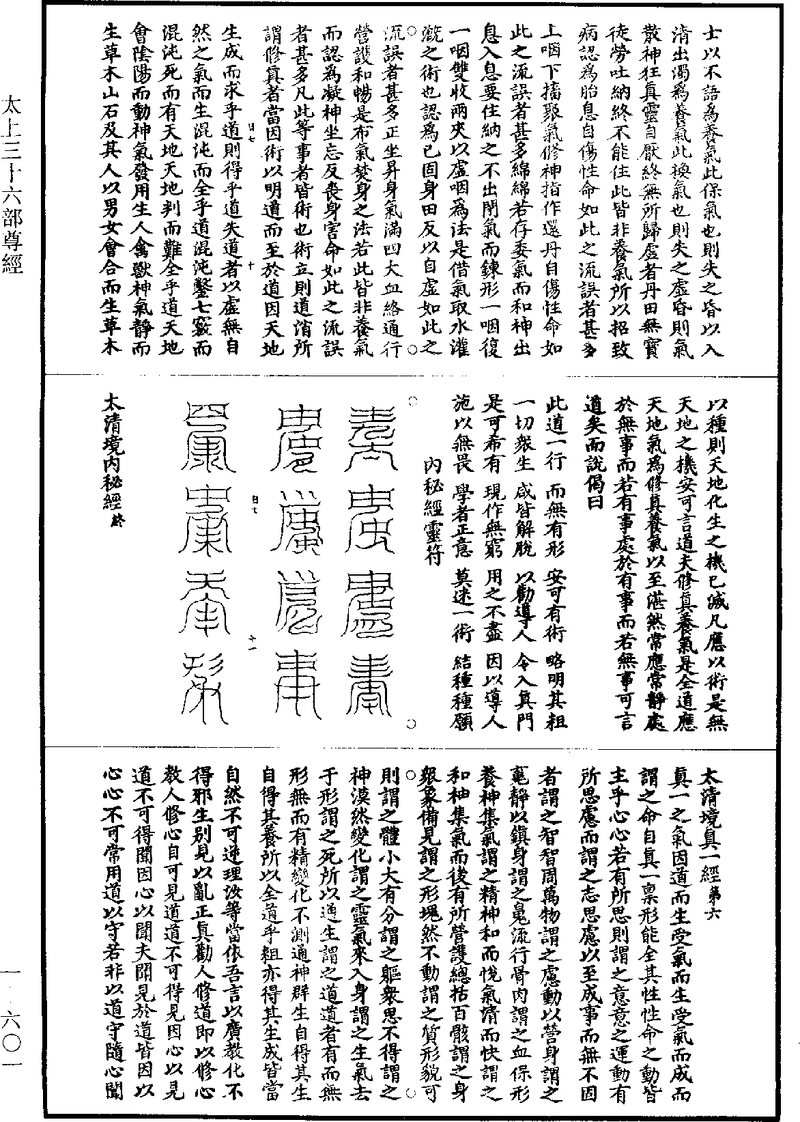 太上三十六部尊經
士以不語爲養氣此保氣也則失之昏以入
清出濁爲養氣此換氣也則失之虛昏則氣
散神狂真靈自厭終無所歸虛者丹田無寶
徒勞吐納終不能住此皆非養氣所以招致
病認爲胎息自傷性命如此之流誤者甚多
上咽下搐聚氣修神指作還丹自傷性命如
此之流誤者甚多綿綿若存委氣而和神出
息入息要住納之不出閉氣而鍊形一咽復
一咽雙收兩夾以虛咽爲法是借氣取水灌
溉之術也認爲已固身田反以自虛如此之
流誤者甚多正坐昇身氣滿四大血絡通行
營護和暢是布氣焚身之法若此皆非養氣
而認爲凝神坐忘反喪身害命如此之流誤
者甚多凡此等事者皆術也術立則道消所
謂修真者當因術以明道而至於道因天地
生成而求乎道則得乎道失道者以虛無自
然之氣而生混沌而全乎道混沌鑿七竅而
混沌死而有天地天地判而難全乎道天地
會陰陽而動神氣發用生人禽獸神氣靜而
生草木山石及其人以男女會合而生草木
以種則天地化生之機已滅凡應以術是無
天地之機安可言道夫修真養氣是全道應
天地氣爲修真養氣以至湛然常應常靜處
於無事而若有事處於有事而若無事可言
道矣而說偈曰
此道一行 而無有形 安可有術 略明其粗
一切衆生 咸皆解脫 以勸導人 令入真門
是可希有 現作無窮 用之不盡 因以導人
施以無畏 學者正意 莫迷一術 結種種願
內秘經靈符
太清境內秘經終
太清境真一經第六
真一之氣因道而生受氣而生受氣而成而
謂之命自真一稟形能全其性性命之動皆
主乎心心若有所思則謂之意意之運動有
所思慮而謂之志思慮以至成事而無不因
者謂之智智周萬物謂之慮動以營身謂之
䰟靜以鎮身謂之䰟流行骨肉謂之血保形
養神集氣謂之精神和而悅氣清而快謂之
和神集氣而後有所營護總括百骸謂之身
衆象備見謂之形塊然不動謂之質形貌可
則謂之體小大有分謂之軀衆思不得謂之
神漠然變化謂之靈氣來入身謂之生氣去
于形謂之死所以通生謂之道道者有而無
形無而有精變化不測通神群生自得其生
自得其養所以全道乎粗亦得其生成皆當
自然不可逆理汝等當依吾言以廣教化不
得邪生别見以亂正真勸人修道即以修心
教人修心自可見道道不可得見因心以見
道不可得聞因心以聞夫聞見於道皆因以
心心不可常用道以守若非以道守隨心聞
一·六〇一